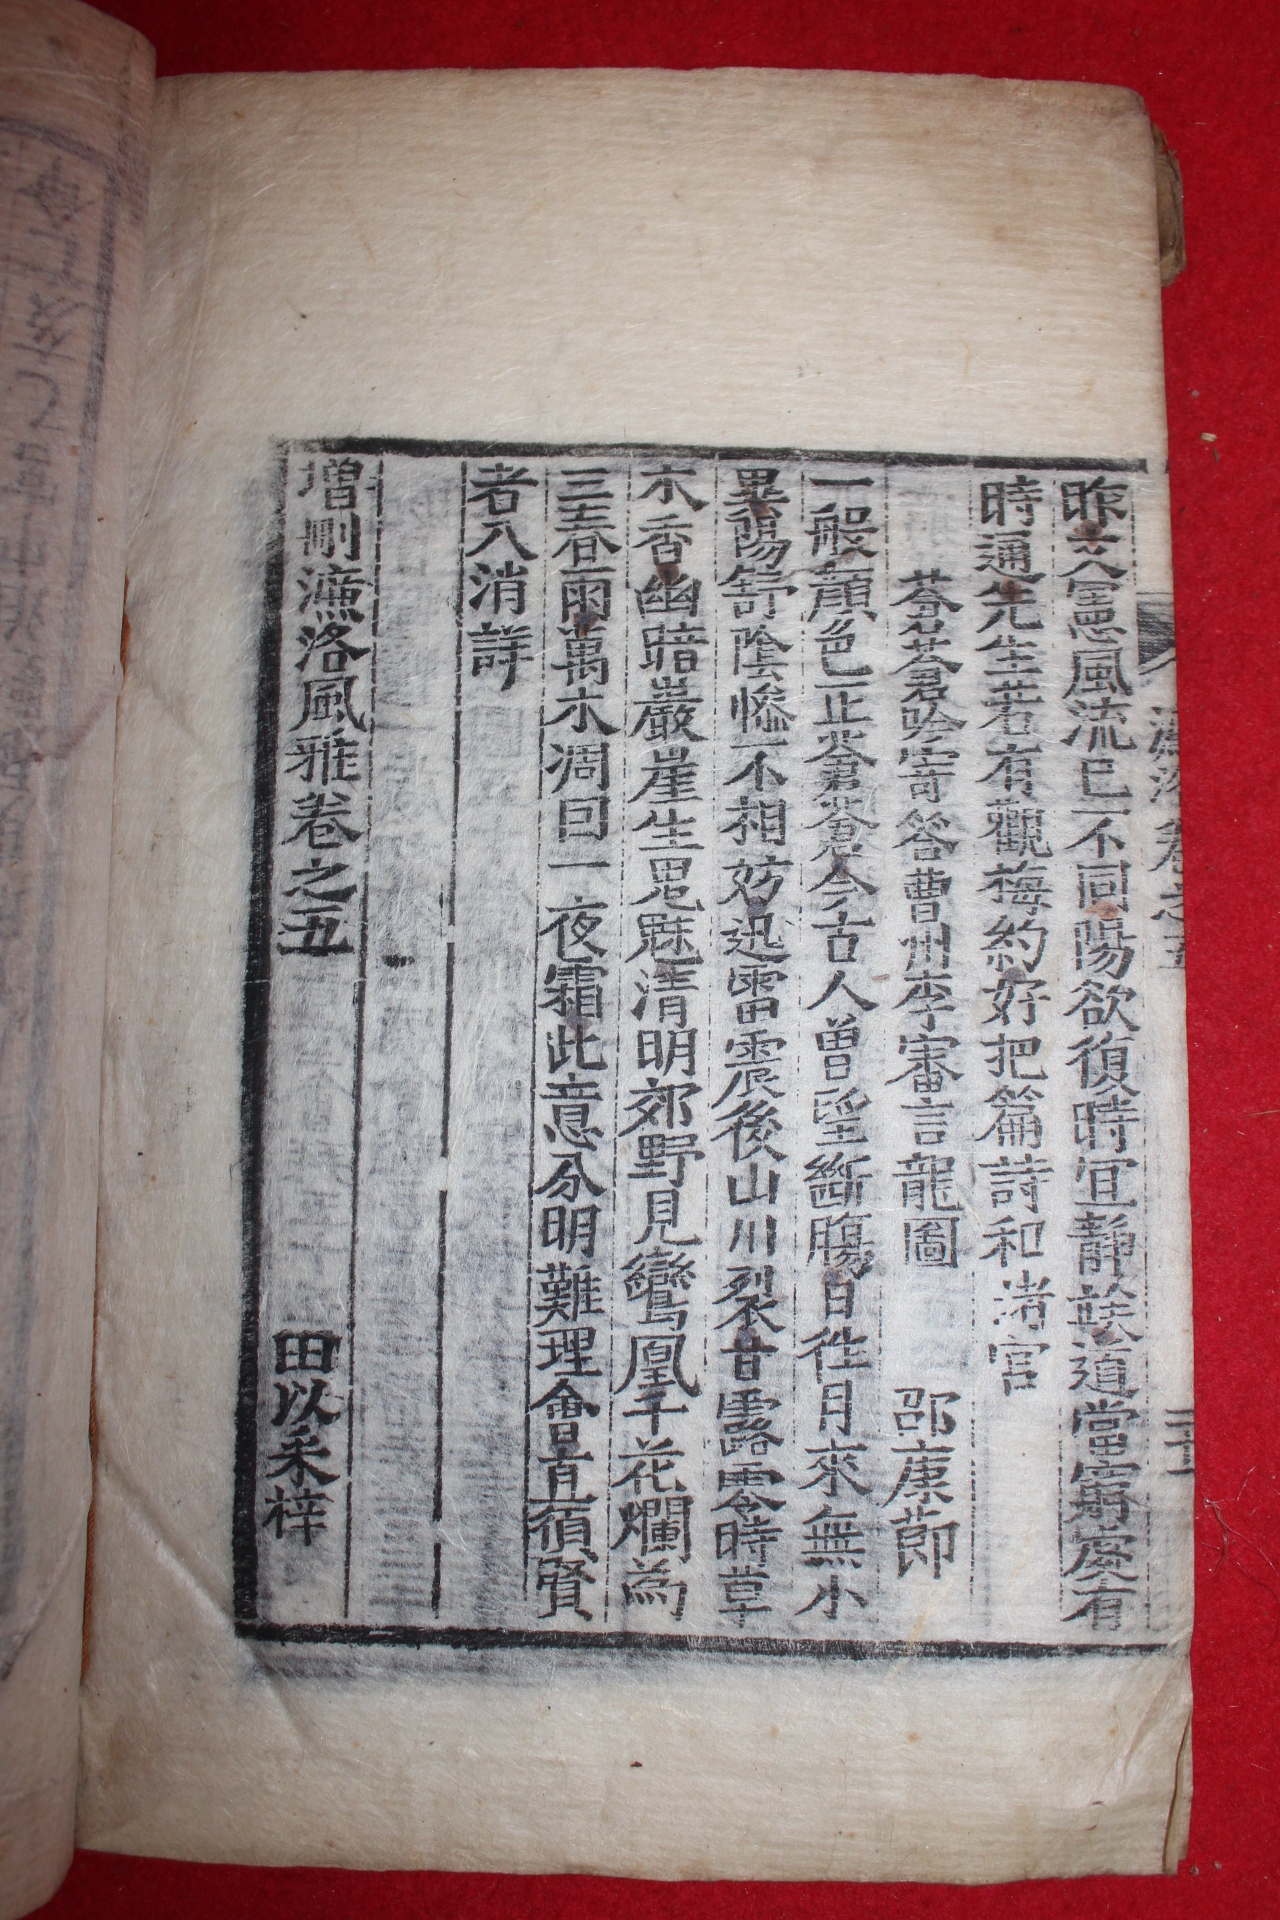 昨文憲風流已不同陽欲復時宜靜翫道當窮處有
時通先生若有觀梅約好把篇詩和渚宮
蒼蒼吟寄答曹州李審言龍圖 邵康節
一般顔色正蒼蒼今古人曾望斷腸日徃月來無小
異陽舒陰慘不相妨迅雷震後山川裂甘露零時草
木香幽暗巖崖生鬼魅清明郊野見鸞凰千花爛為
三春雨萬木凋回一夜霜此意分明難理會直須賢
者入消詳
增刪濂洛風雅卷之五
田以采梓
濂洛卷之五